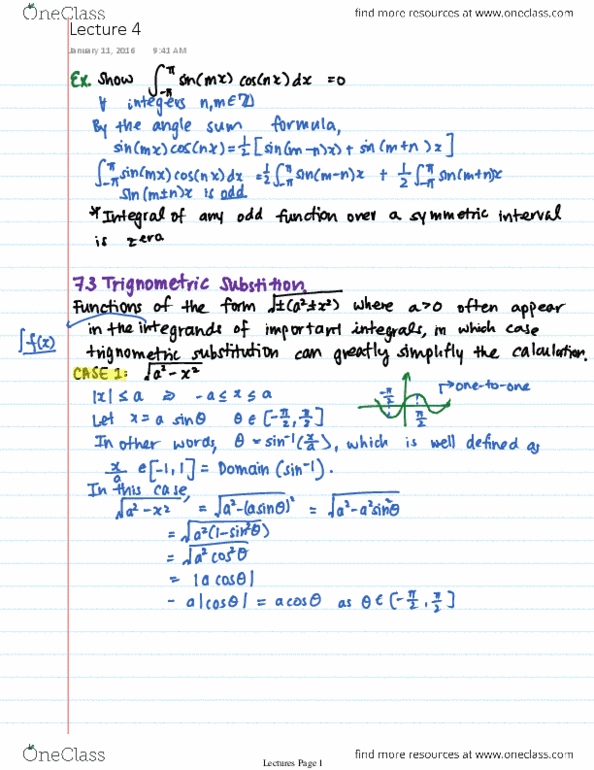 OneClass
find more resources at www.oneclass.com
Lecture 4
January 11, 2016 9:41 AM
Ex. Show ∫_{-π}^{π} sin(mx) cos(nx) dx = 0
∀ integers n, m ∈ ℤ
By the angle sum formula,
sin(mx) cos(nx) = 1/2 [sin(m-n)x) + sin(m+n)x]
∫_{-π}^{π} sin(mx) cos(nx) dx = 1/2 ∫_{-π}^{π} sin(m-n)x + 1/2 ∫_{-π}^{π} sin(m+n)x
sin(m±n)x is odd
*Integral of any odd function over a symmetric interval
is zero
7.3 Trignometric Substition
Functions of the form √±(a²±x²) where a>0 often appear
in the integrands of important integrals, in which case
∫f(x)
trignometric substitution can greatly simplify the calculation.
CASE 1: √a²-x²
|x| ≤ a ⇒ -a ≤ x ≤ a
-π/2 π/2 → one-to-one
Let x = a sinθ θ ∈ [-π/2, π/2]
In other words, θ = sin⁻¹(x/a), which is well defined as
x/a ∈ [-1, 1] = Domain (sin⁻¹).
In this case,
√a²-x² = √a²-(asinθ)² = √a²-a²sin²θ
= √a²(1-sin²θ)
= √a²cos²θ
= |a cosθ|
- a|cosθ| = a cosθ as θ ∈ [-π/2, π/2]
OneClass
Lectures Page 1
find more resources at www.oneclass.com